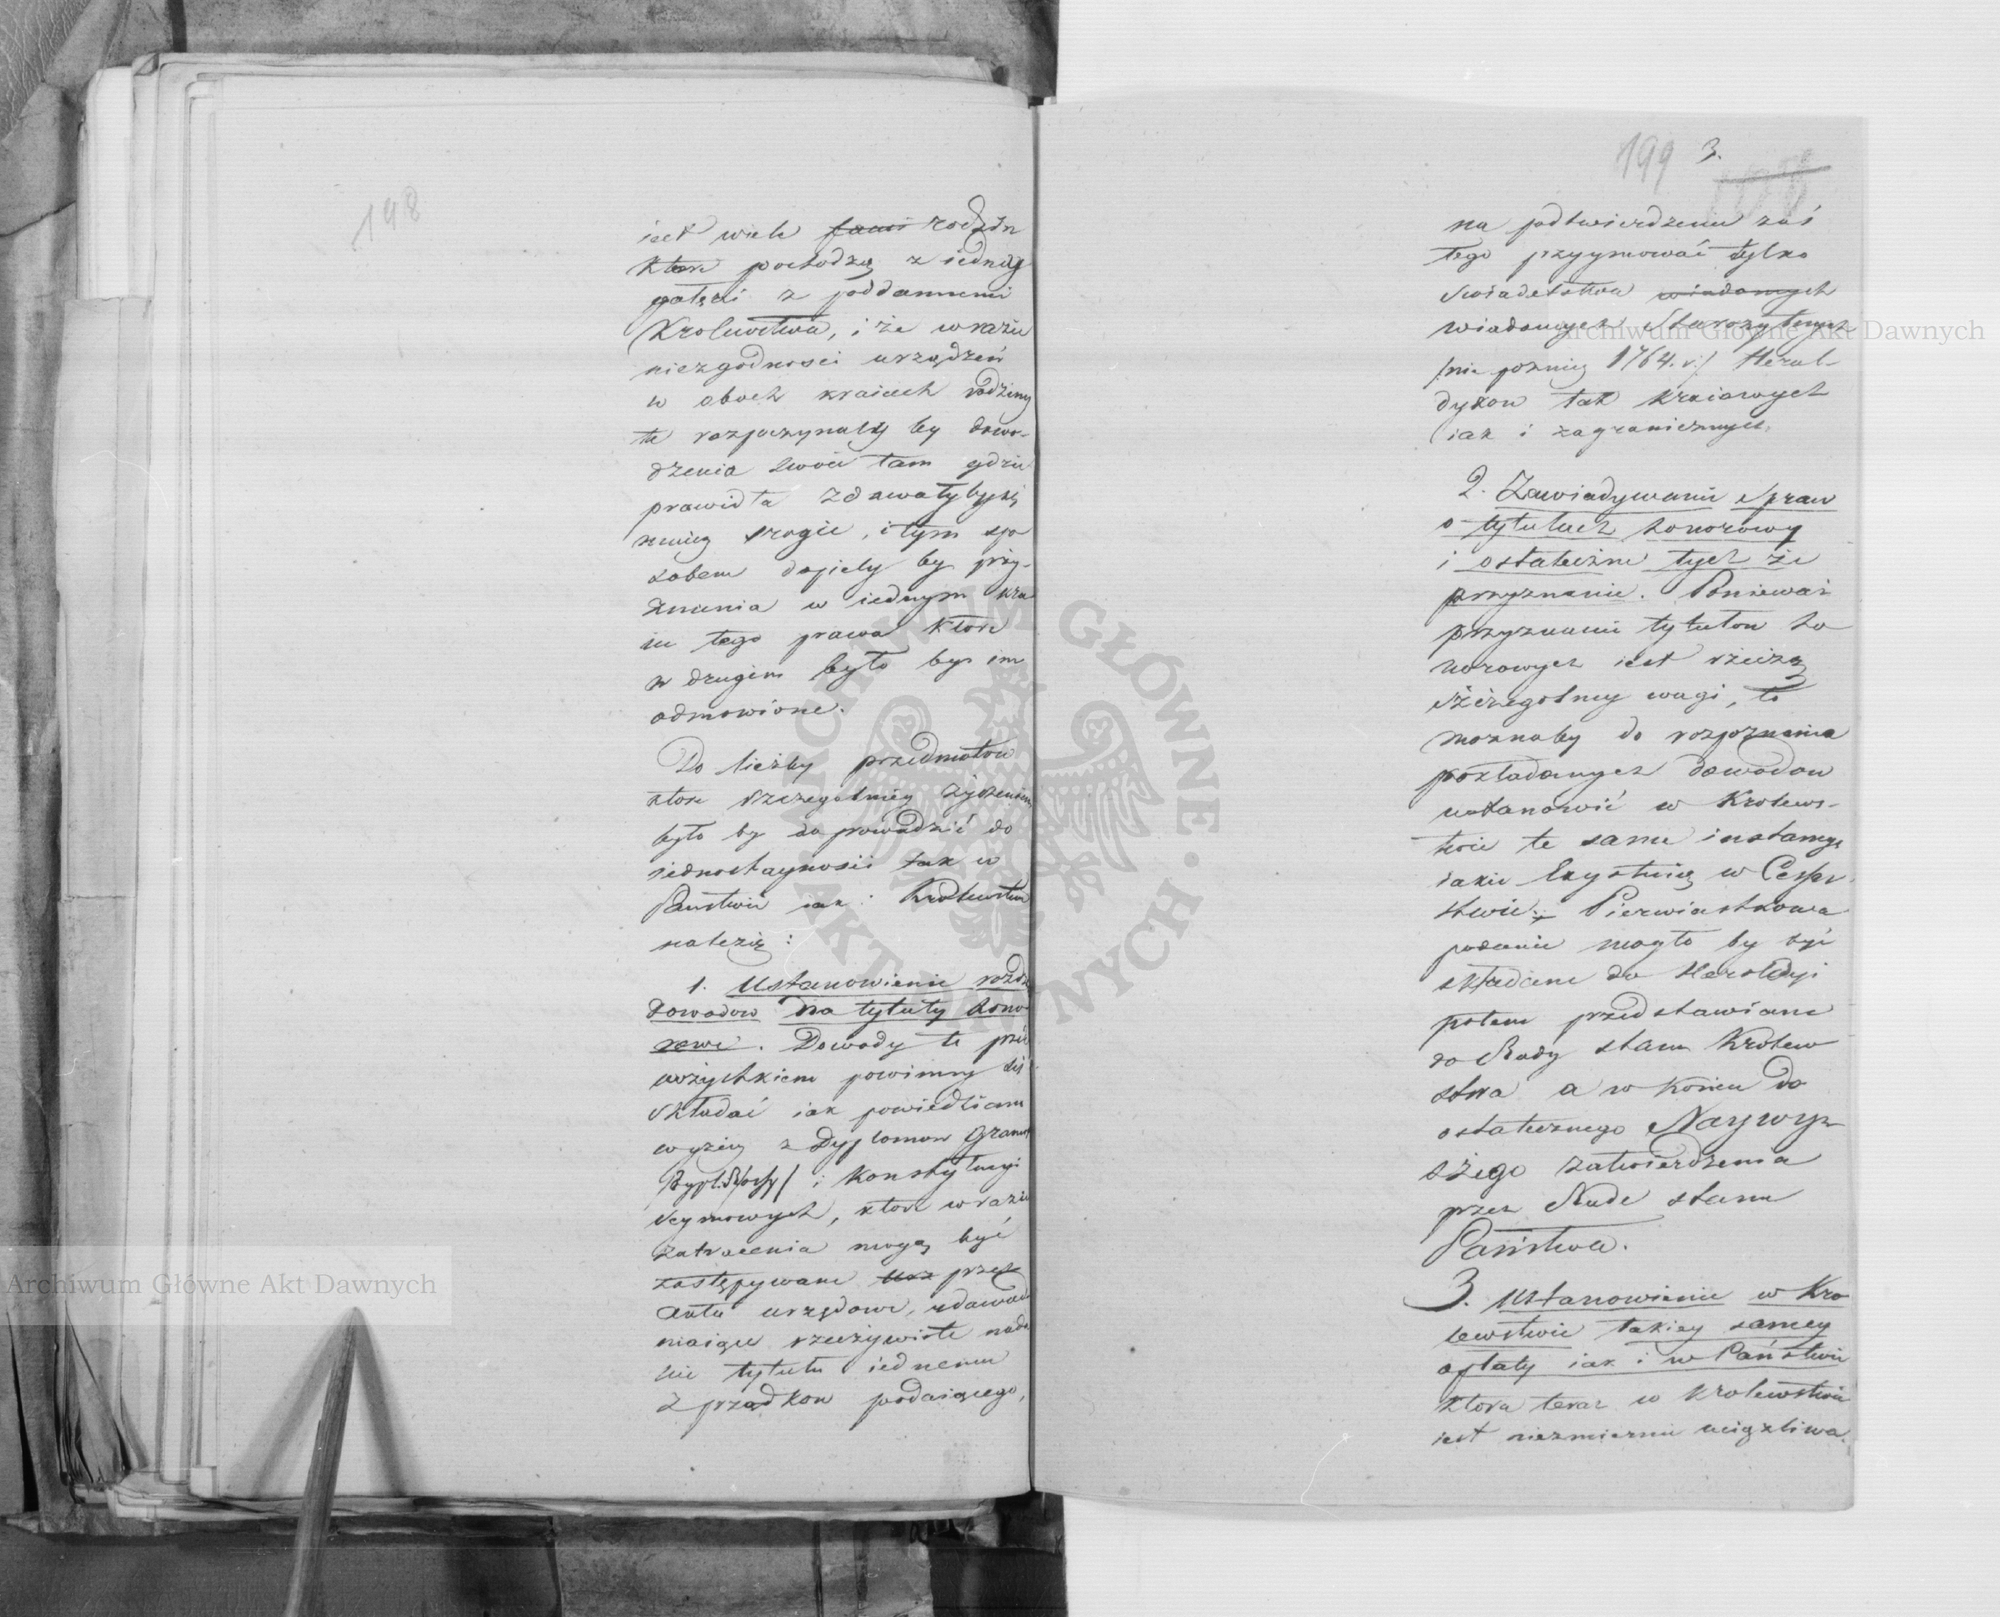 198
iest wiele fami rodzin
ktore pochodzą z iedney
gałęzi z poddannemi
Krolewstwa, i że w razie
niezgodnosci urządzeń
w obock kraiach rodziny
te rozpoczynały by dowo-
dzenia swoie tam gdzie
prawidła zdawałyby się
mniey srogie, i tym spo
sobem dopieły by przy-
znania w iednym kra
iu tego prawa ktore
w drugim było by im
odmowione.
Do liczby przedmiotow
ktore szczegolniey życzeniem
było by doprowadzić do
iednostaynosci tak w
Państwie iak i Krolewstwie
należą:
1. Ustanowienie rodz.
dowodow na tytuły hono-
rowe. Dowody te prze
wszystkiem powinny się
składać iak powiedziano
wyżey z Dyplomow Gramot
i Konstytucyi
Seymowych, ktore w razie
zatracenia mogą być
zastępywane przez
Akta urzędowe, udawad
niaiące rzeczywiste nada
nie tytułu iednemu
z przodkow podaiącego,
199 3.
na potwierdzenie zaś
tego przyymować tylko
swiadectwa wiadomych
wiadomych Starożytnych
/nie pozniey 1764. r:/ Heral-
dykow tak kraiowych
iak i zagranicznych.
2. Zawiadywanie spraw
o tytułach honorowy
i ostateczne tych że
przyznanie. Ponieważ
przyznanie tytułow ho
norowych iest rzeczą
szczegolney wagi, to
możnaby do rozpoznania
pokładanych dowodow
ustanowić w Krolews-
twie te same instancye
iakie Exystuią w Cesar-
stwie: Pierwiastkowa
podanie mogło by być
składane do Heroldyi
potem przedstawiane
do Rady stanu Krolew
stwa a w końcu do
ostatecznego Naywyż
szego zatwierdzenia
przez Radę stanu
Państwa.
3. Ustanowienie w Kro
lewstwie takiey samey
opłaty iak i w Państwie
ktora teraz w Krolewstwie
iest niezmiernie uciążliwa.
Archiwum Główne Akt Dawnych
Archiwum Główne Akt Dawnych
ARCHIWUM GŁÓWNE AKT DAWNYCH